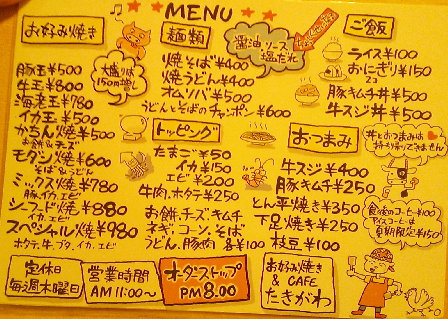 MENU
お好み焼き
豚玉 ¥500
牛玉 ¥800
海産玉 ¥780
イカ玉 ¥500
かちん焼 ¥500
お餅&チーズ
モダン焼 ¥600
そば&うどん
ミックス焼 ¥780
豚、イカ、エビ
シーフード焼 ¥880
イカ、エビ
スペシャル焼 ¥980
ホタテ、牛、ブタ、イカ、エビ
大盛りは
150円増し
麺類
焼そば ¥400
焼うどん ¥400
オムソバ ¥500
うどんとそばのチャンポン ¥600
醤油ソース
塩だれ
トッピング
たまご ¥50
イカ ¥150
エビ ¥200
牛肉、ホタテ ¥250
お餅、チーズ、キムチ
ネギ、コーン、そば
うどん、豚肉 各¥100
ご飯
ライス ¥100
おにぎり ¥150
2コ
豚キムチ丼 ¥500
牛スジ丼 ¥500
おつまみ
丼とおつまみは
持ち帰りできません
牛スジ ¥400
豚キムチ ¥250
とん平焼き ¥350
下足焼き ¥250
枝豆 ¥100
食後のコーヒー ¥100
アイスコーヒーは
夏期限定 ¥150
定休日
毎週木曜日
営業時間
AM 11:00〜
オーダーストップ
PM 8.00
お好み焼き
& CAFE
たきがわ